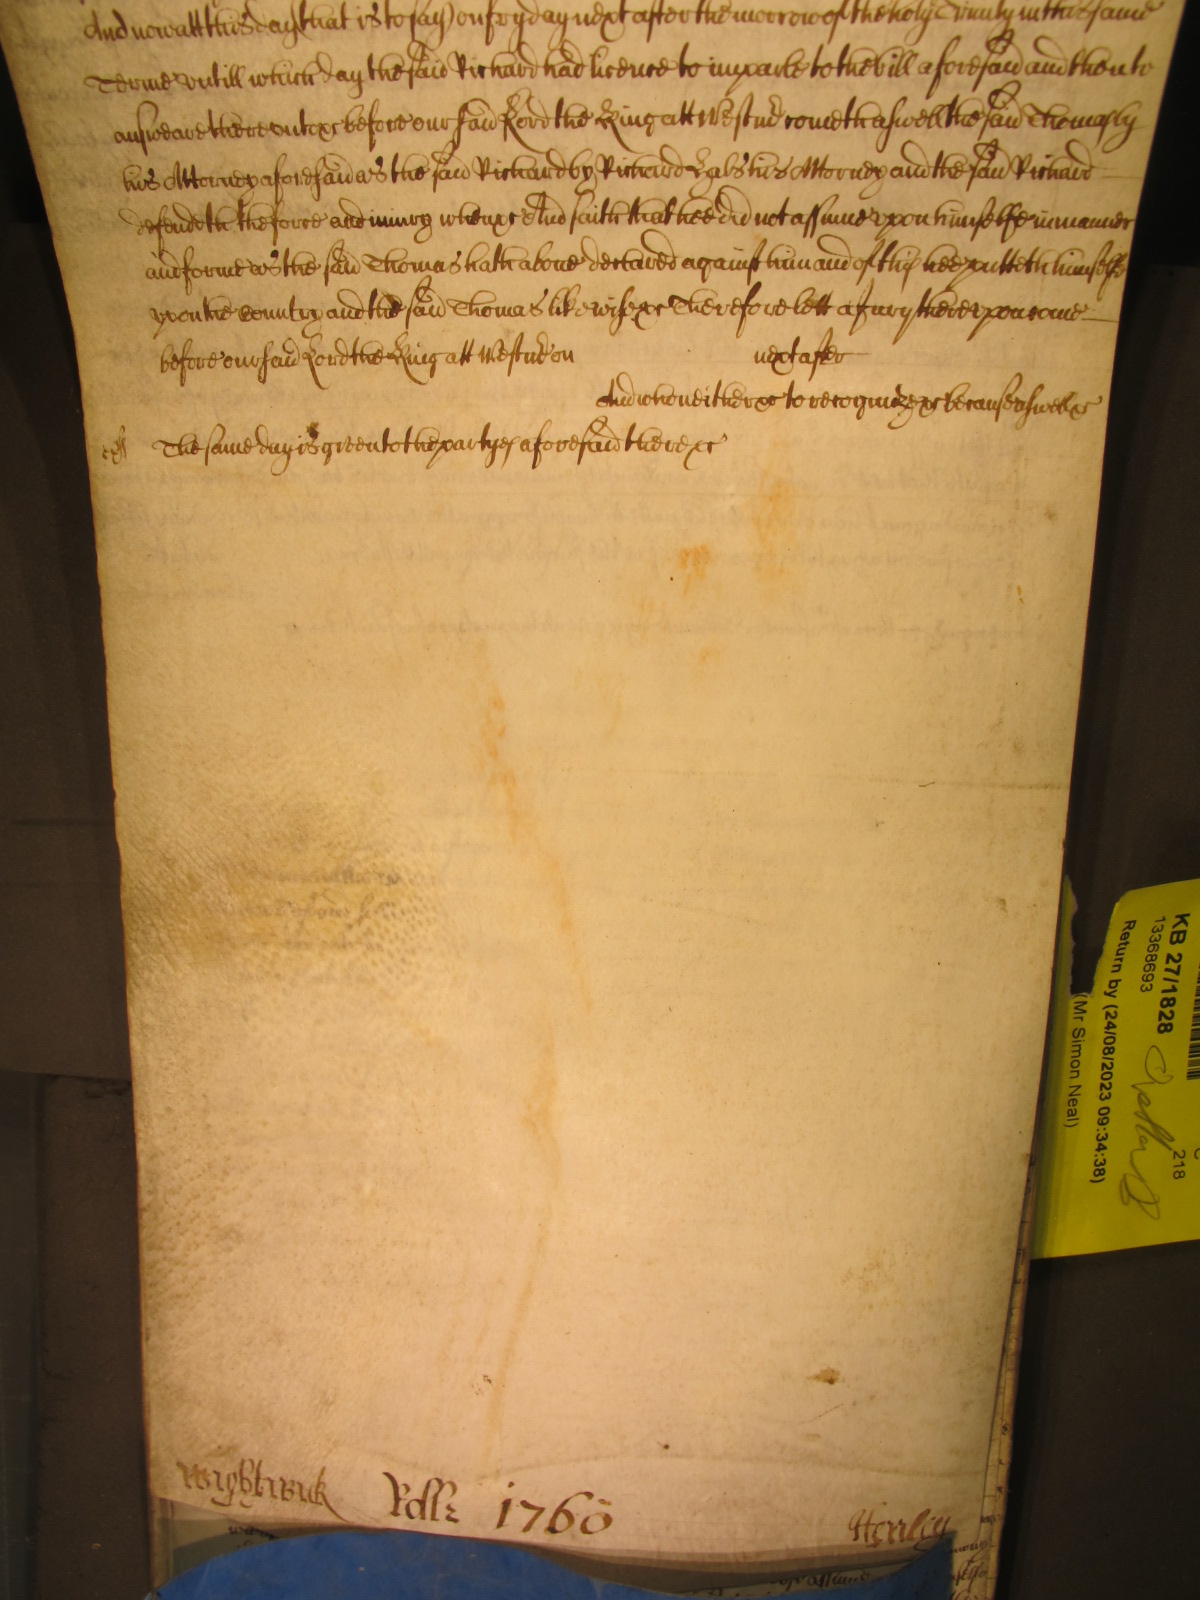 And now att this day (that is to say) on fryday next after the morrow of the holy Trinity in this same
Terme untill which day the said Richard had licence to imparle to the bill aforesaid and then to
answeare there unto &c before our said Lord the King att Westmr cometh aswell the said Thomas by
his Attorney aforesaid as the said Richard by Richard his Attorney and the said Richard
defendeth the force and iniury when &c And saith that hee did not assume upon himselfe in manner
and forme as the said Thomas hath above declared against him and of this hee putteth himselfe
upon the Country and the said Thomas likewise &c Therefore lett a Jury thereupon come
before our said Lord the King att Westmr on next after
And who neither &c to recognize &c because aswell &c
The same day is given to the partyes aforesaid there &c
Wightwick Rolle 1760 Henley
KB 27/1828
13368693
218
Return by (24/08/2023 09:34:38)
(Mr Simon Neal)